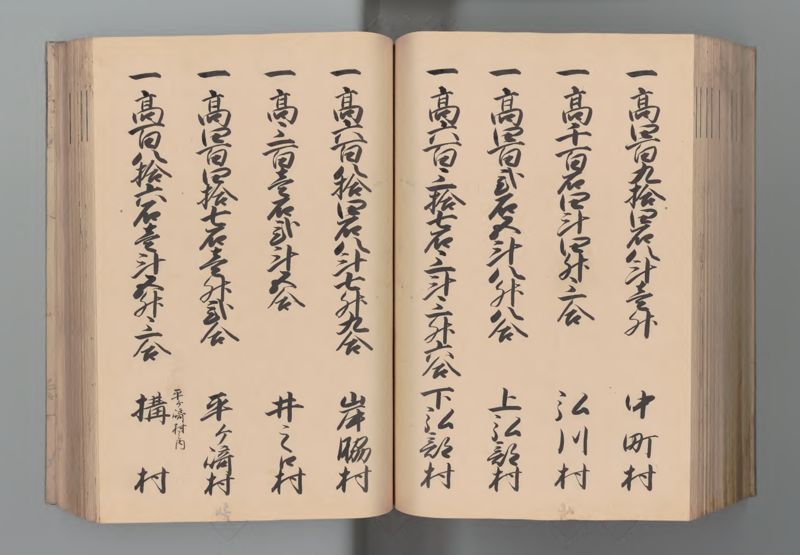 一髙四百九拾四石八斗壱升 中町村
一髙千百石四斗四升三合 弘川村
一髙四百弐石五斗八升八合 上弘部村
一髙六百三拾七石三斗三升六合 下弘部村
一髙六百八拾四石八斗七升九合 岸脇村
一髙三百壱石弐斗五合 井之口村
一髙四百四拾七石壱升弐合 平ヶ崎村
平ヶ崎村内
一髙百八拾六石壱斗五升三合 構村